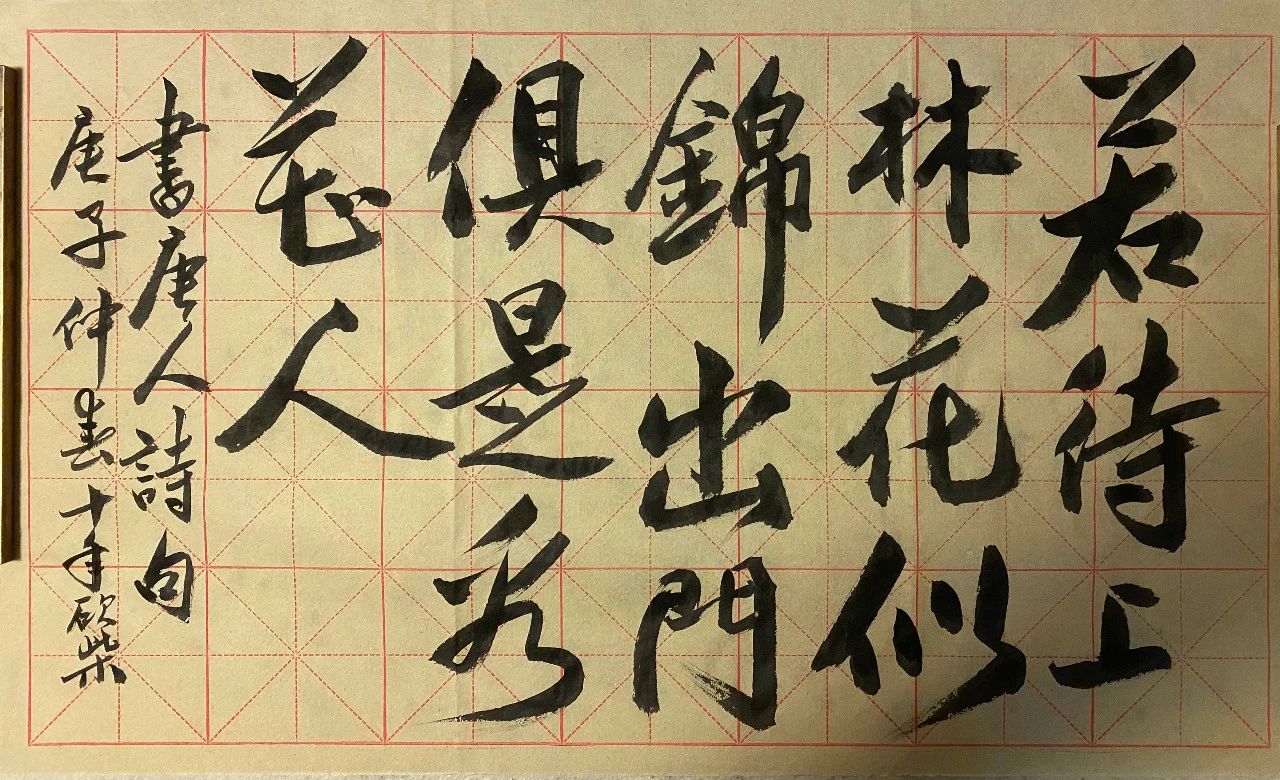 若待上
林花似
錦出門
俱是看
花人
書唐人詩句
庚子仲春十年砍柴